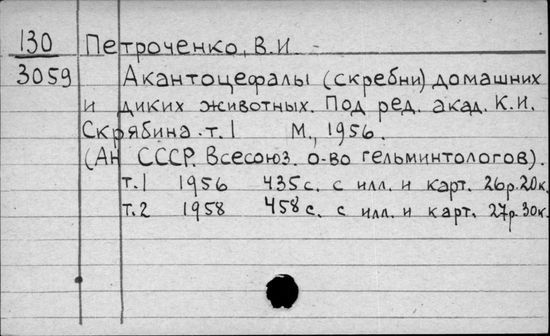 130 Петроченко, В.И.
3059 Акантоцефалы (скребни) домашних
и диких животных. Под ред. акад. К.И.
Скрябина. т.1 М., 1956.
(Ан СССР. Всесоюз. о-во гельминтологов).
т.1 1956 435с. с илл. и карт. 26р.20к.
т.2 1958 458с. с илл. и карт. 27р.30к.